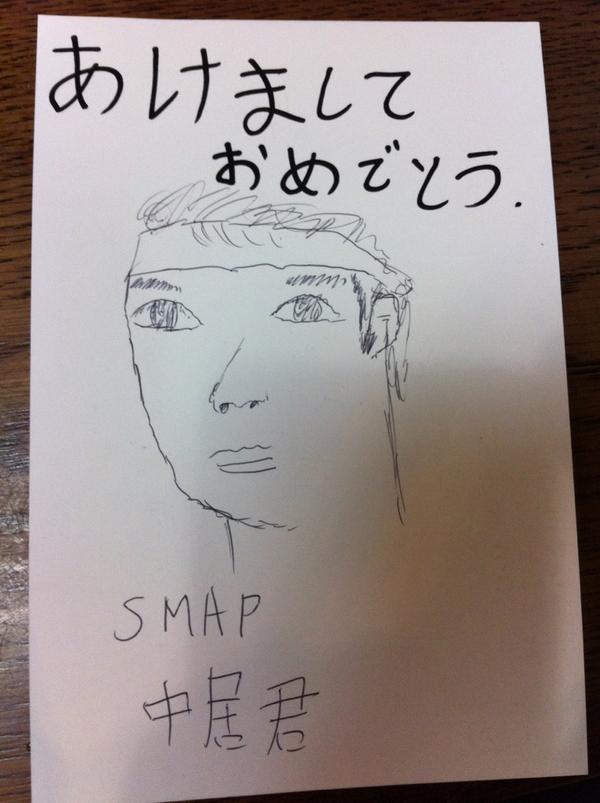 あけまして
おめでとう.
SMAP
中居君